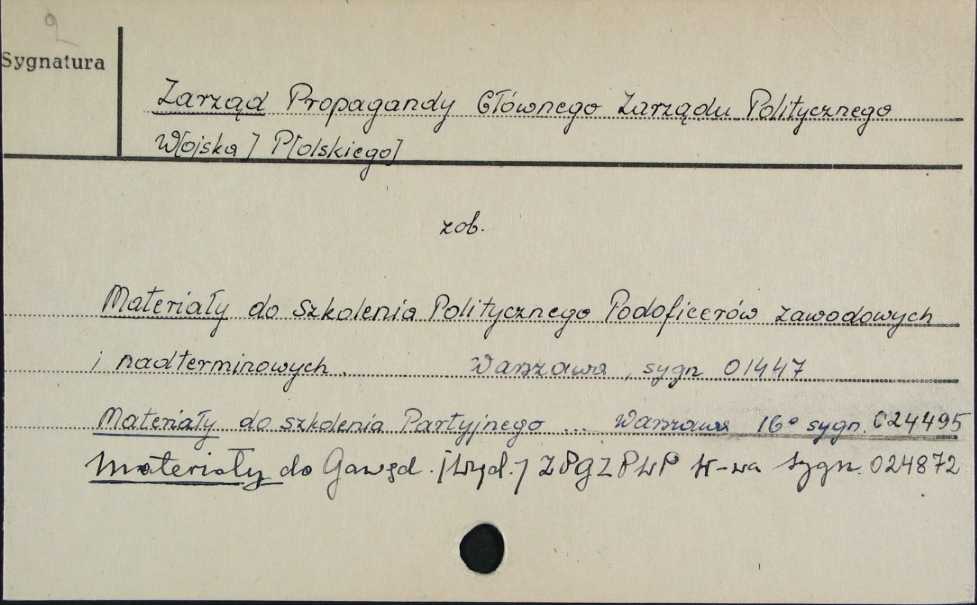 2
Sygnatura
Zarząd Propagandy Głównego Zarządu Politycznego
W[ojska] P[olskiego]
zob.
Materiały do szkolenia Politycznego Podoficerów zawodowych
i nadterminowych. Warszawa, sygn 01447
Materiały do szkolenia Partyjnego ... Warszawa 16° sygn. 024495
Materiały do Gawęd. [Wyd.] ZPGZPWP W-wa Sygn. 024872